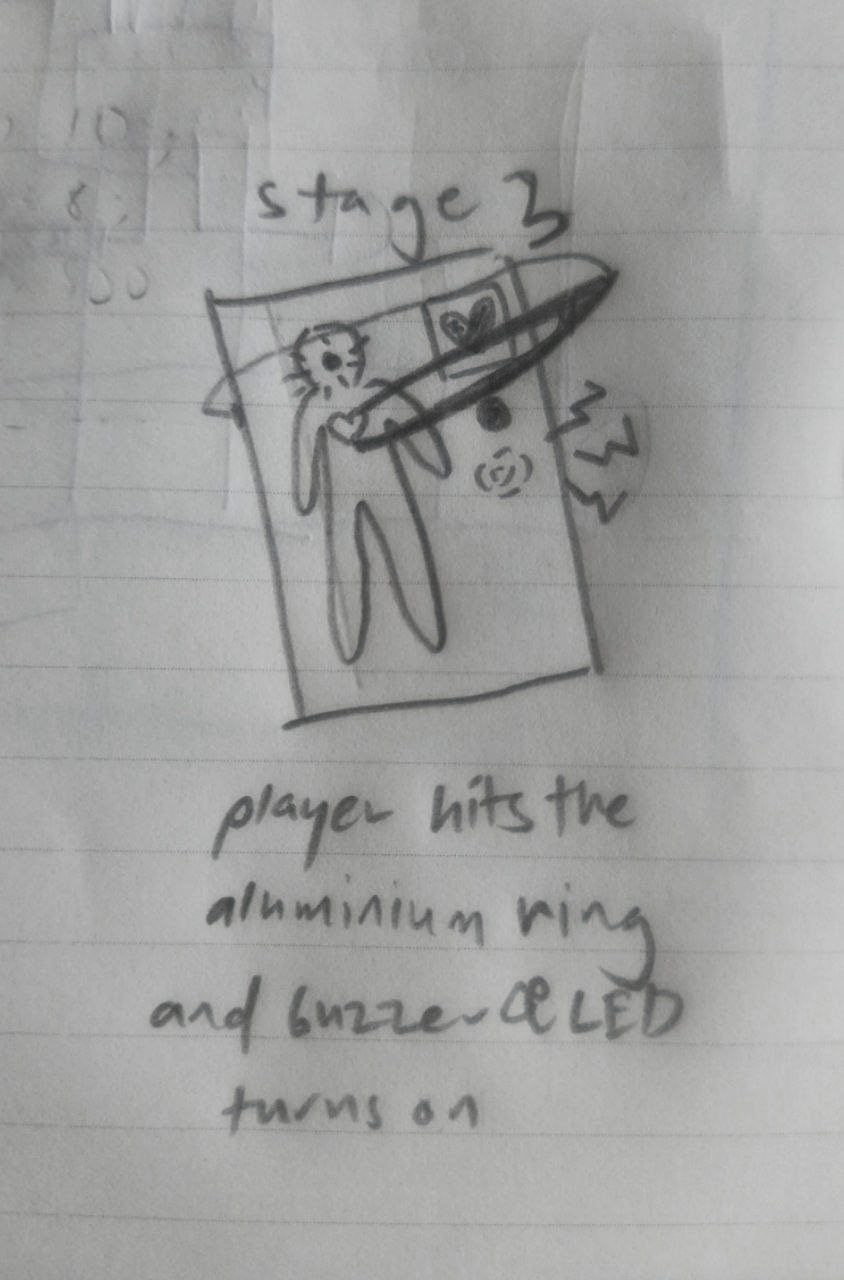 10,
8,
500
stage 3
player hits the
aluminium ring
and buzzer & LED
turns on